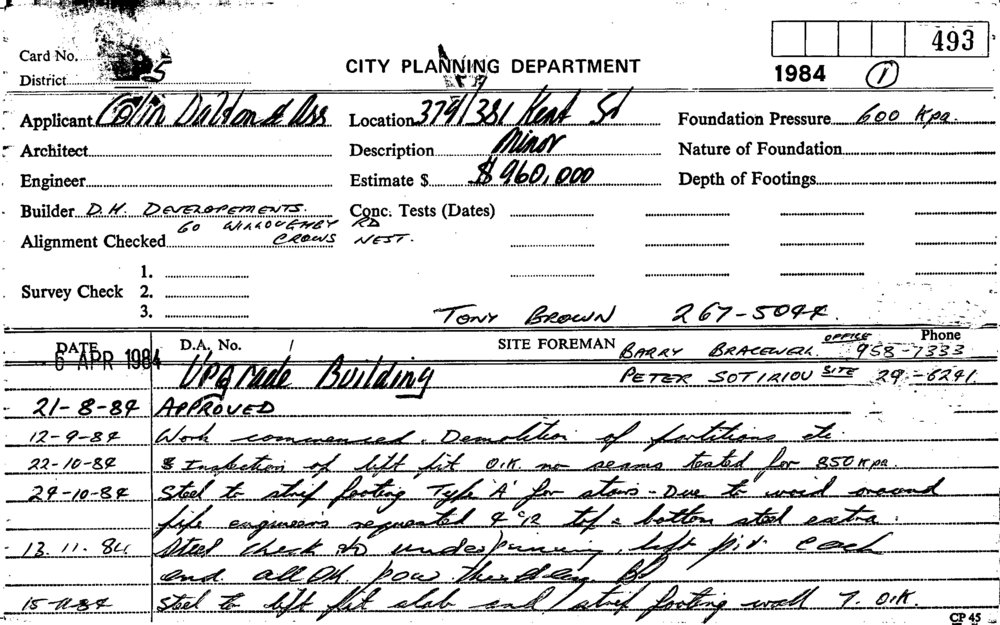 493
Card No.
CITY PLANNING DEPARTMENT
1984 1
District S
Applicant Colin Dalton & Ass Location 379/381 Kent St Foundation Pressure 600 Kpa.
Architect Description Minor Nature of Foundation
Engineer Estimate $ $960,000 Depth of Footings
Builder D.H. DEVELOPEMENTS. Conc. Tests (Dates)
60 WILLOUGHBY RD
Alignment Checked CROWS NEST.
1.
Survey Check 2.
3.
TONY BROWN 267-5044.
DATE D.A. No. / SITE FOREMAN BARRY BRACEWELL OFFICE Phone 958-7333
6 APR 1984 Upgrade Building PETER SOTIRIOU SITE 29-6241.
21-8-84 APPROVED
12-9-84 Work commenced. Demolition of partitions etc.
22-10-84 Inspection of lift pit O.K. no seams tested for 850 Kpa.
29-10-84 Steel to strip footing Type 'A' for stairs - Due to void around
pipe engineers requested top & bottom steel extra.
13.11.84 Steel check to underpinning, lift pit each
end. all OK pour
15-11-84 Steel to lift pit slab and strip footing wall 7. O.K.
CP 45